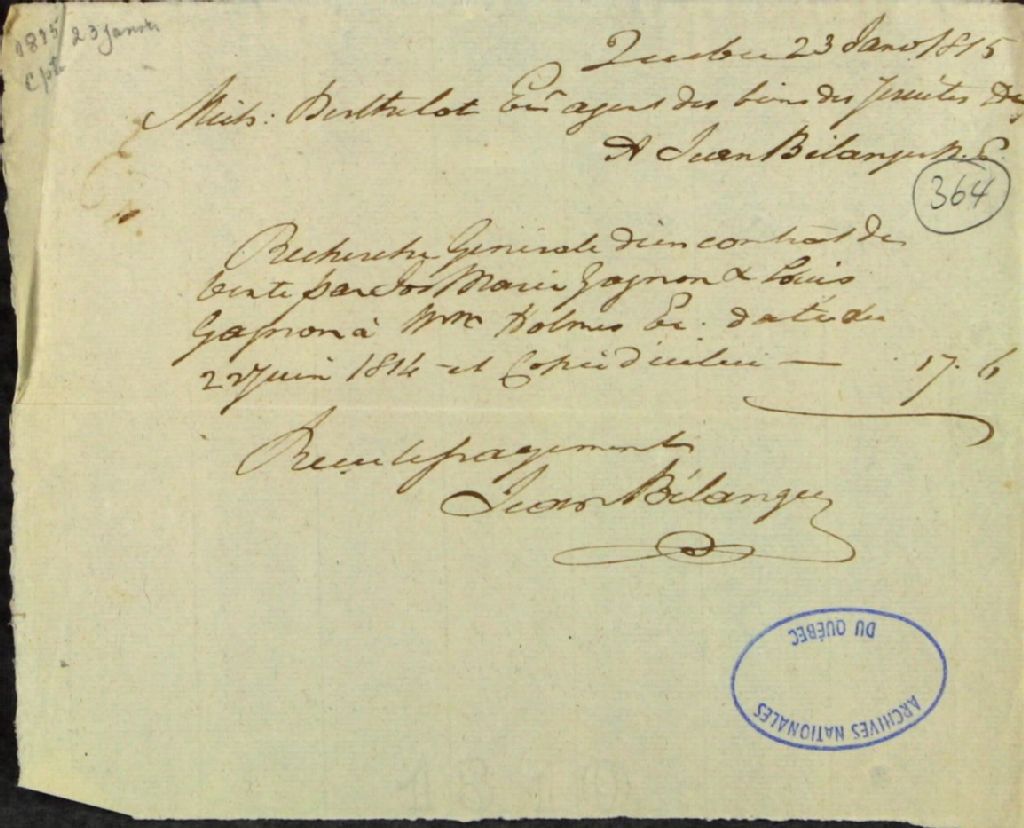 1815 23 Janvier
Cpte
Quebec 23 Janv 1815
Mich: Berthelot Ecr agent des biens des Jesuites Dr
A Jean Bélanger N. P.
364
Recherche Générale d'un contrat de
Vente par Jos Marie Gagnon & Louis
Gagnon à Wm Holmes Ec. daté du
22 Juin 1814 et Copie d'icelui — 17. 6
Recu le payement
Jean Bélanger
ARCHIVES NATIONALES
DU QUÉBEC